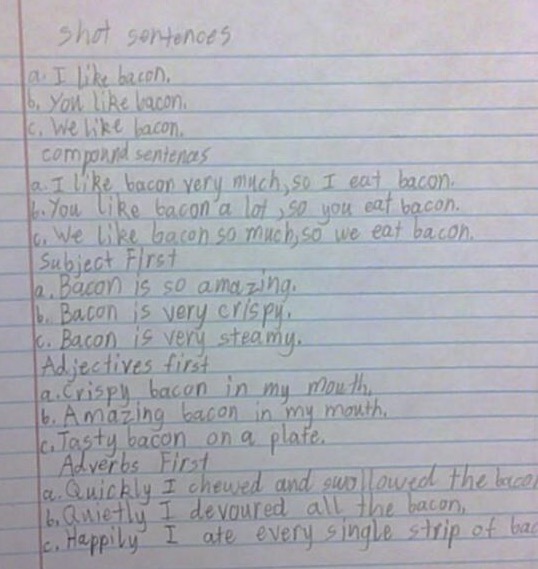 shot sentences
a. I like bacon.
b. You like bacon.
c. We like bacon.
compound sentences
a. I like bacon very much, so I eat bacon.
b. You like bacon a lot, so you eat bacon.
c. We like bacon so much, so we eat bacon.
Subject First
a. Bacon is so amazing.
b. Bacon is very crispy.
c. Bacon is very steamy.
Adjectives first
a. Crispy bacon in my mouth.
b. Amazing bacon in my mouth.
c. Tasty bacon on a plate.
Adverbs First
a. Quickly I chewed and swollowed the baco
b. Quietly I devoured all the bacon.
c. Happily I ate every single strip of bac